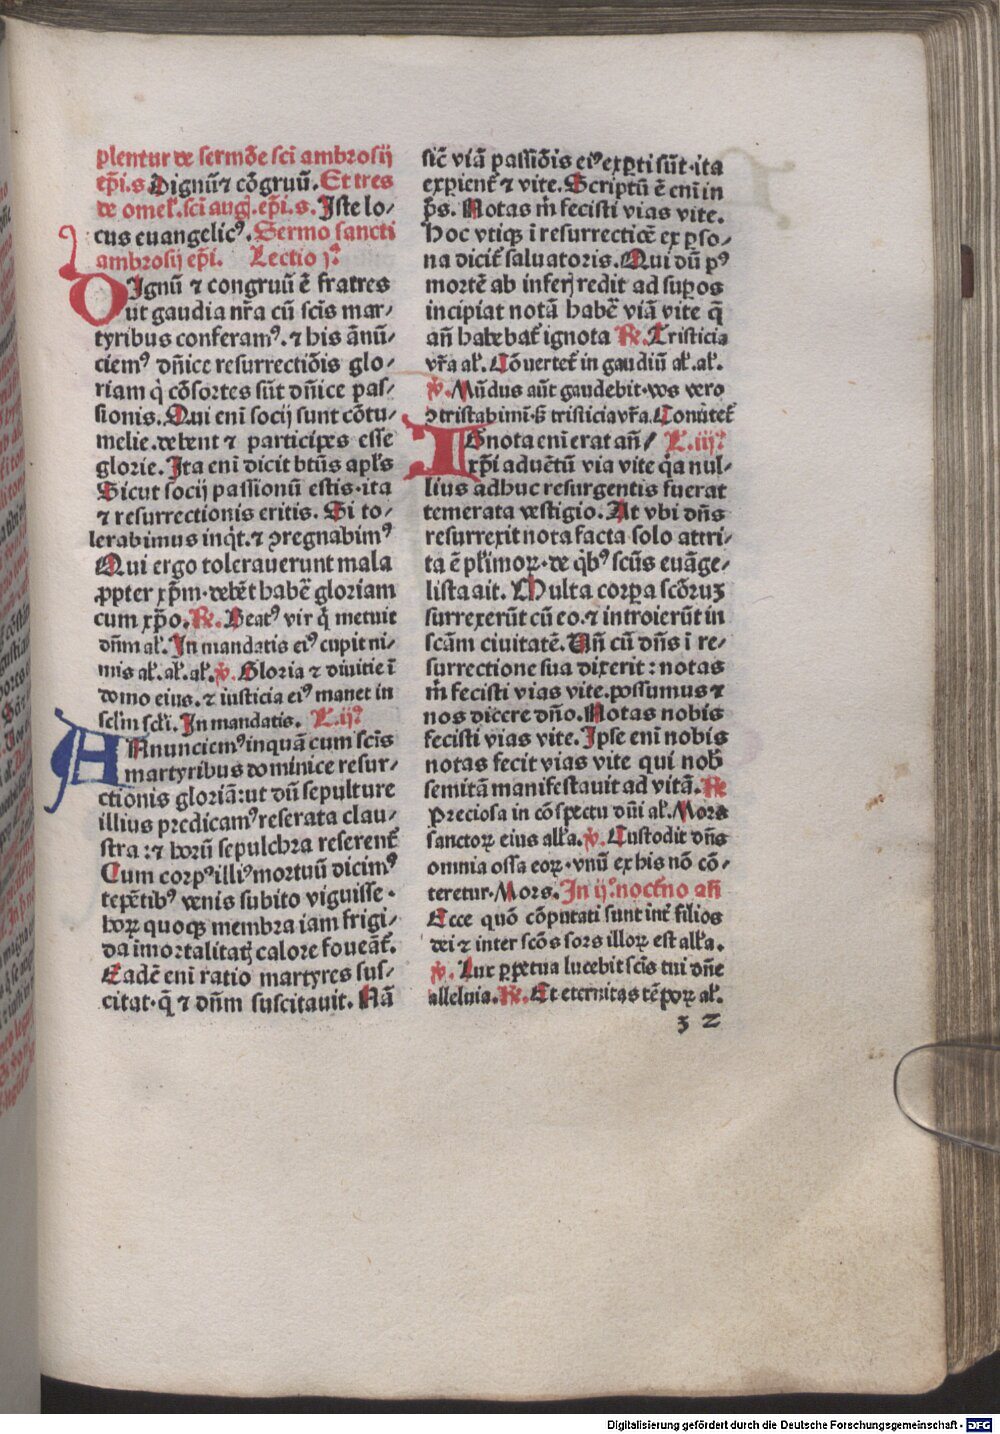 plentur de sermōe sci̅ ambrosij
ep̅i.s Dignū ⁊ cōgruū. Et tres
de omel̓. sci̅ aug̓. ep̅i.s. Iste lo⸗
cus euangelicꝰ. Sermo sancti
ambrosij ep̅i. Lectio j̓.
DIgnū ⁊ congruū ē fratres
ut gaudia nr̅a cū scīs mar⸗
tyribus conferamꝰ. ⁊ his ānū⸗
ciemꝰ dn̅ice resurrectiōis glo⸗
riam q̓ cōsortes sūt dn̅ice pas⸗
sionis. Qui eni̅ socij sunt cōtu⸗
melie. debent ⁊ participes esse
glorie. Ita eni̅ dicit btūs apl̅s
Sicut socij passionū estis. ita
⁊ resurrectionis eritis. Si to⸗
lerabimus inq̓t. ⁊ ꝯregnabimꝰ
Qui ergo tolerauerunt mala
ꝓpter xp̅m. debēt habē gloriam
cum xp̅o. ℞. Beatꝰ vir q̓ metuit
dn̅m al̓. In mandatis eiꝰ cupit ni⸗
mis al̓. al̓. al̓. ℣. Gloria ⁊ diuitie ī
domo eius. ⁊ iusticia eiꝰ manet in
sel̅m sel̅i. In mandatis. L. ij̓.
ANnunciemꝰ inquā cum scīs
martyribus dominice resur⸗
ctionis gloriā: ut dū sepulture
illius predicamꝰ reserata clau⸗
stra: ⁊ horū sepulchra reserent̓
Cum corpꝰ illiꝰ mortuū dicimꝰ
tepētibꝰ venis subito viguisse.
hoꝝ quoqꝫ membra iam frigi⸗
da imortalitatꝭ calore foueāt̓.
Eadē eni̅ ratio martyres sus⸗
citat. q̓ ⁊ dn̅m suscitauit. Nā
sic̅ viā passiōis eiꝰ exꝑti sūt. ita
exꝑient̓ ⁊ vite. Scriptū ē eni̅ in
ps̅. Notas m̓ fecisti vias vite.
Hoc vtiqꝫ ī resurrectiōe ex pso⸗
na dicit̓ saluatoris. Qui dū pꝰ
mortē ab inferꝭ redit ad suꝑos
incipiat notā habē viā vite q̄
an̅ habebat̓ ignota ℞. Tristicia
vr̅a al̓. Cōuertet̓ in gaudiū al̓. al̓.
℣. Mūdus aūt gaudebit. vos vero
ꝯtristabimi̅. s̓ tristicia vr̅a. Conūtet̓
IGnota eni̅ erat an̅ L. iij̓.
xp̅i aduētū via vite q̓a nul⸗
lius adhuc resurgentis fuerat
temerata vestigio. At vbi dn̅s
resurrexit nota facta solo attri⸗
ta ē pl̓imoꝝ. de q̓bꝰ scūs euāge⸗
lista ait. Multa corꝑa scōruꝫ
surrexerūt cū eo. ⁊ introierūt in
scām ciuitatē. Vn̅ cū dn̅s ī re⸗
surrectione sua dixerit: notas
m̓ fecisti vias vite. possumus ⁊
nos dicere dn̅o. Notas nobis
fecisti vias vite. Ipse eni̅ nobis
notas fecit vias vite qui nob̓
semitā manifestauit ad vitā. ℞
Preciosa in cōspectu dn̅i al̓. Mors
sanctoꝝ eius all̓a. ℣. Custodit dn̅s
omnia ossa eoꝝ. vnū ex his nō cō⸗
teretur. Mors. In ij̓. noct̓no an̅
Ecce quō cōputati sunt int̓ filios
dei ⁊ inter scōs sors illoꝝ est all̓a.
℣. Lux ꝑpetua lucebit scīs tui dn̅e
alleluia. ℞. Et eternitas tēpoꝝ al̓.
3 2
Digitalisierung gefördert durch die Deutsche Forschungsgemeinschaft - DFG